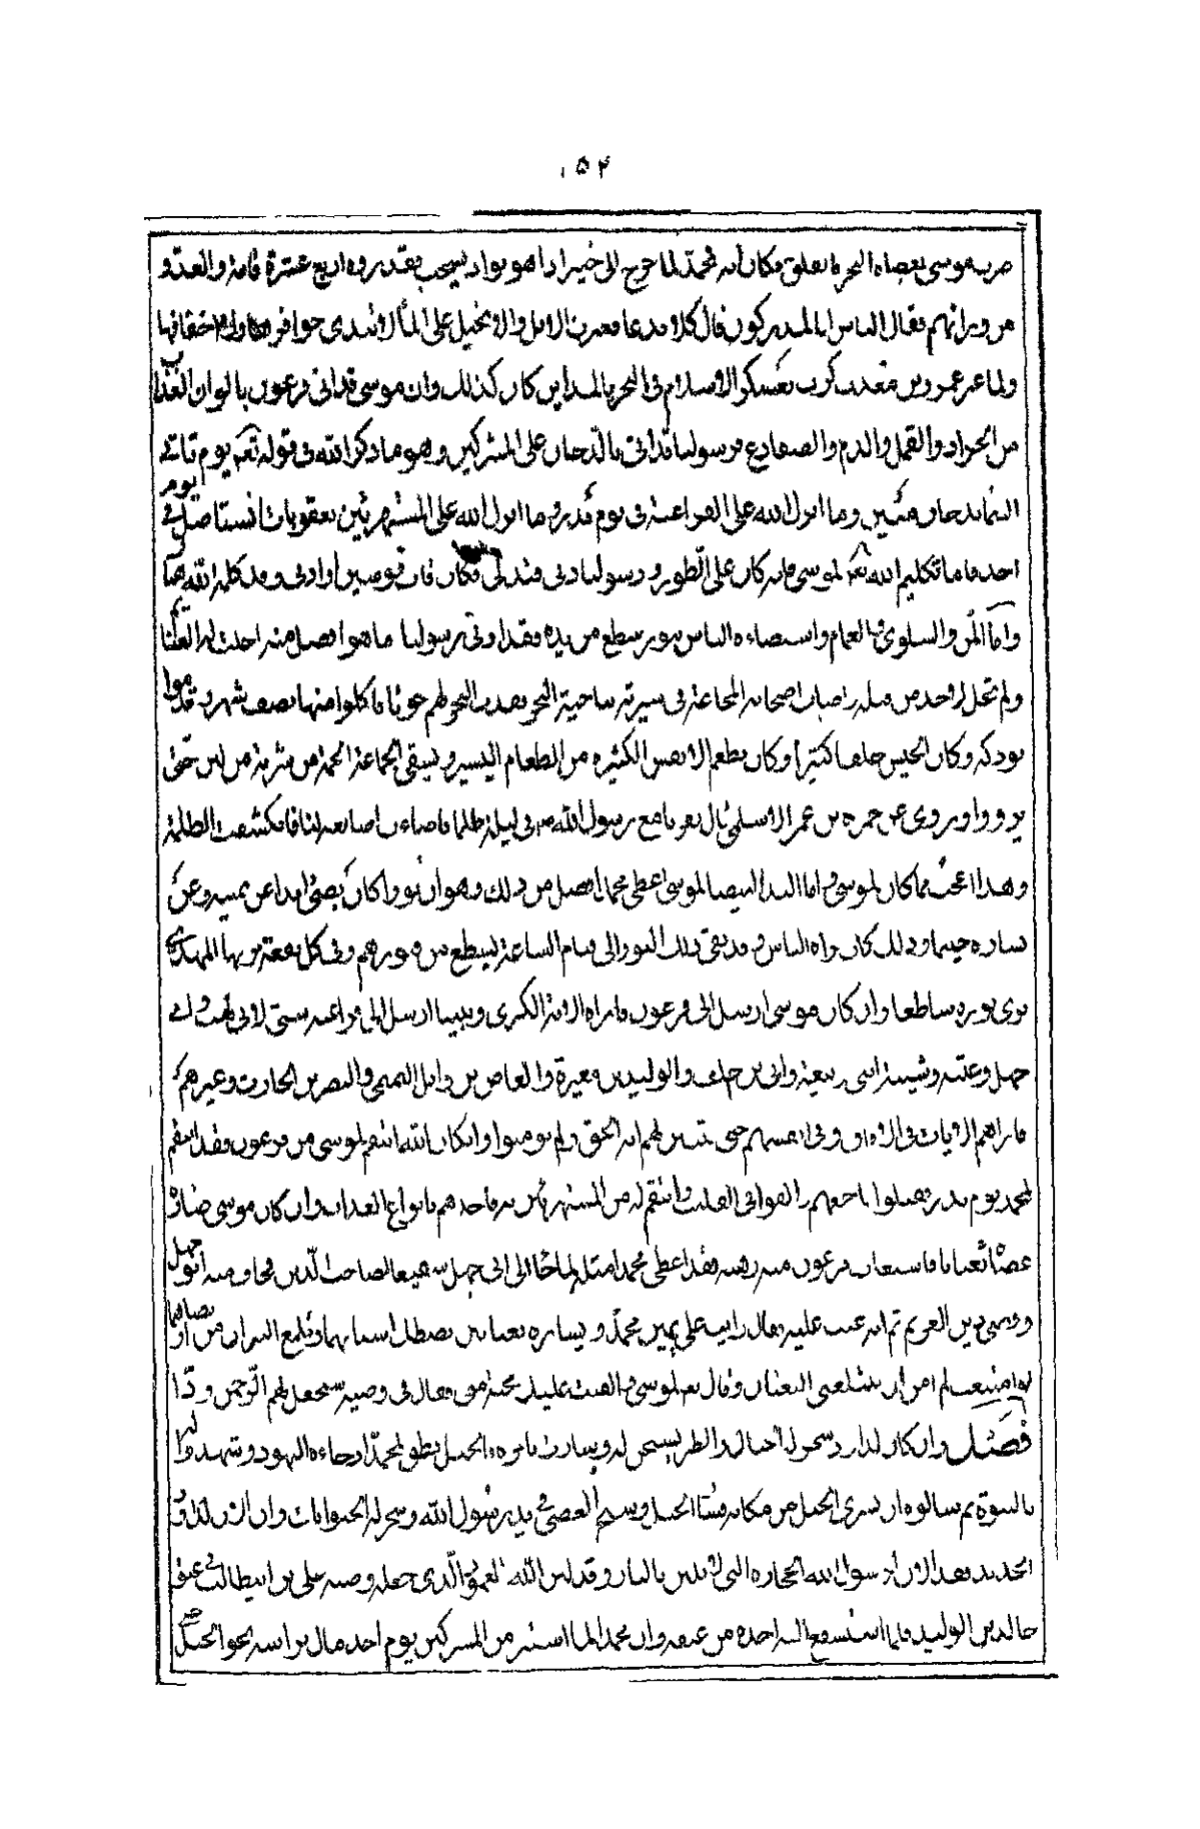 ۱۵۴
ضرب موسى بعصاه البحر فانفلق فكان انه محمد لما خرج الى خيبر اذا هو بواد يسحب فقدروه اربع عشرة قامة والعدو
من ورائهم فقال الناس انا لمدركون قال كلا فدعا فعبرت الابل والخيل على الماء لا تندى حوافرها ولا اخفافها
ولما عبر عمرو بن معدي كرب بعسكر الاسلام في البحر بالمداين كان كذلك وان موسى قد اتى فرعون بالوان العذاب
من الجراد والقمل والدم والضفادع فرسولنا قد اتى بالدخان على المشركين وهو ما ذكر الله في قوله تعالى يوم تاتي
السماء بدخان مبين وما انزل الله على الفراعنة في يوم بدر وما انزل الله على المستهزئين بعقوبات تستاصل في يوم
احد فاما تكليم الله تعالى لموسى فانه كان على الطور ورسولنا دنى فتدلى فكان قاب قوسين او ادنى وقد كلمه الله هناك
واما المن والسلوى والغمام واستضاءة الناس بنور سطع من يده فقد اوتي رسولنا ما هو افضل منه احلت له الغنائم
ولم تحل لاحد من قبله واصاب اصحابه المجاعة في سرية بناحية البحر فقذف البحر لهم حوتا فاكلوا منها نصف شهر وقدموا
بودكه وكان الجيش خلقا كثيرا وكان يطعم الانفس الكثيرة من الطعام اليسير ويسقي الجماعة الجمة من شربة من لبن حتى
يرووا وروى عن حمزة بن عمر الاسلمي قال نفرنا مع رسول الله ص في ليلة ظلماء فاضاءت اصابعه لنا فانكشفت الظلمة
وهذا اعجب مما كان لموسى واما اليد البيضا لموسى اعطى محمد افضل من ذلك وهو ان نورا كان يضئ ابدا عن يمينه وعن
يساره حيثما وذلك كان يراه الناس وقد بقي ذلك النور الى قيام الساعة يسطع من قبورهم وفي كل بقعة مر بها المهدي
يرى نوره ساطعا وان كان موسى ارسل الى فرعون فاراه الاية الكبرى ونبينا ارسل الى فراعنة شتى كابي لهب وابي
جهل وعتبة وشيبة ابني ربيعة وابي بن خلف والوليد بن مغيرة والعاص بن وايل السهمي والنضر بن الحارث وغيرهم
فاراهم الايات في الافاق وفي انفسهم حتى تبين لهم انه الحق ولم يؤمنوا وان كان الله انتقم لموسى من فرعون فقد انتقم
لمحمد يوم بدر فقتلوا باجمعهم والقوا في القليب وانتقم له من المستهزئين به فاخذهم بانواع العذاب وان كان موسى صار
عصاه ثعبانا فاستغاث فرعون منه رهبة فقد اعطى محمد مثله لما جاء الى ابي جهل شفيعا لصاحب الدين فخاف منه ابو جهل
وقضى دين الغريم ثم انه عتب عليه فقال رايت على يمين محمد ويساره ثعبانين تصطك اسنانهما وتلمع النيران من ابصارهما
لو امتنعت لم امن ان يبتلعني الثعبان وقال تعالى لموسى والقيت عليك محبة مني وقال في وصيه سيجعل لهم الرحمن ودا
فصل وان كان داود سخر له الجبال والطير يسبحن له وسارت بامره فالجبل نطق لمحمد اذ جاءه اليهود وشهد له
بالنبوة ثم سالوه ان يسري الجبل من مكانه فسار الجبل وسبح الحصى في يد رسول الله وسخر له الحيوانات وان الان لداود
الحديد فقد الان لرسول الله الحجارة التي لا تلين بالنار وقد لين الله العمود الذي جعله وصيه علي بن ابيطالب في عنق
خالد بن الوليد فلما استشفع اليه اخذه من عنقه وان محمدا لما استتر من المشركين يوم احد مال براسه نحو الجبل